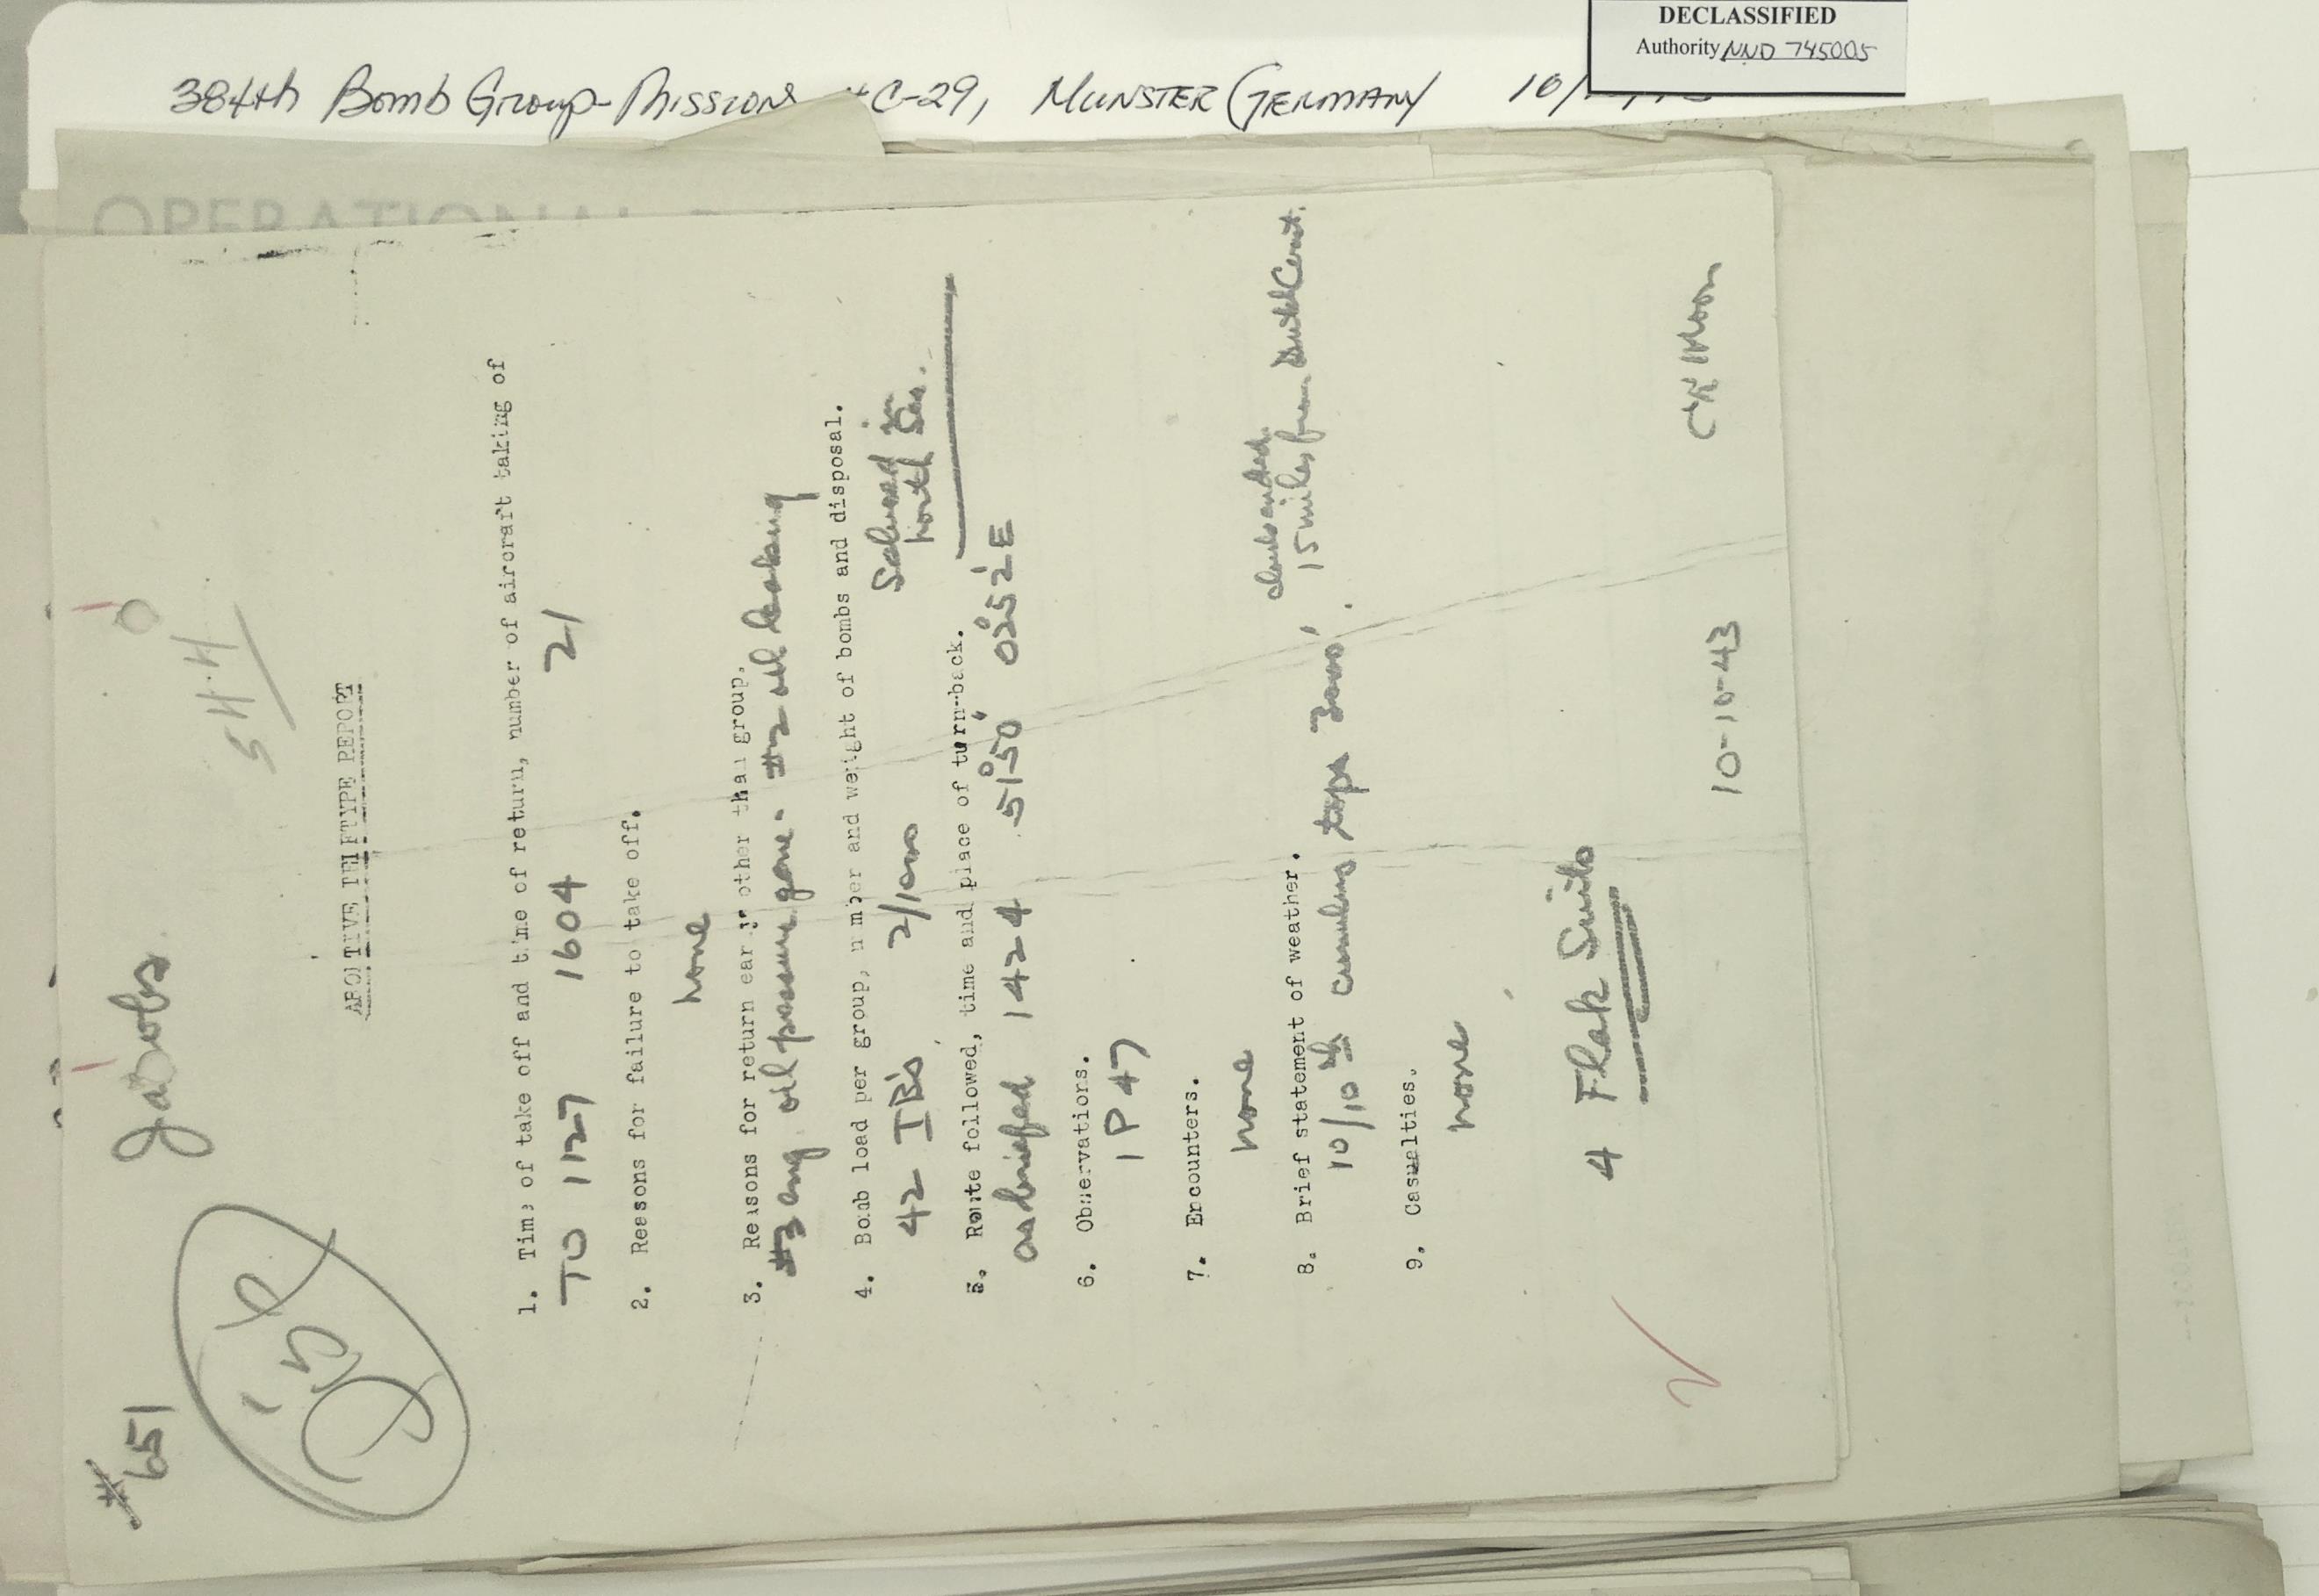 DECLASSIFIED
Authority NND 745005
384th Bomb Group-Missions #C-29, MUNSTER GERMANY 10/
OPERATIONAL
#651
Jacobs
544
ABORTIVE TELETYPE REPORT
1. Time of take off and time of return, number of aircraft taking of
TO 1127 1604 21
2. Reesons for failure to take off.
none
3. Reasons for return early other than group.
#3 eng oil pressure gone - #2 oil leaking
4. Bomb load per group, number and weight of bombs and disposal.
42 IB's 2/1000 Salvoed in
North Sea.
5. Route followed, time and place of turn-back.
as briefed 1424 51°50' 02°52'E
6. Observations.
1 P 47
7. Encounters.
none
8. Brief statement of weather.
clouds ended
10/10th cumulus tops 7000, 15 miles from Dutch Coast.
9. Casualties.
none
4 Flak Suits
10-10-43